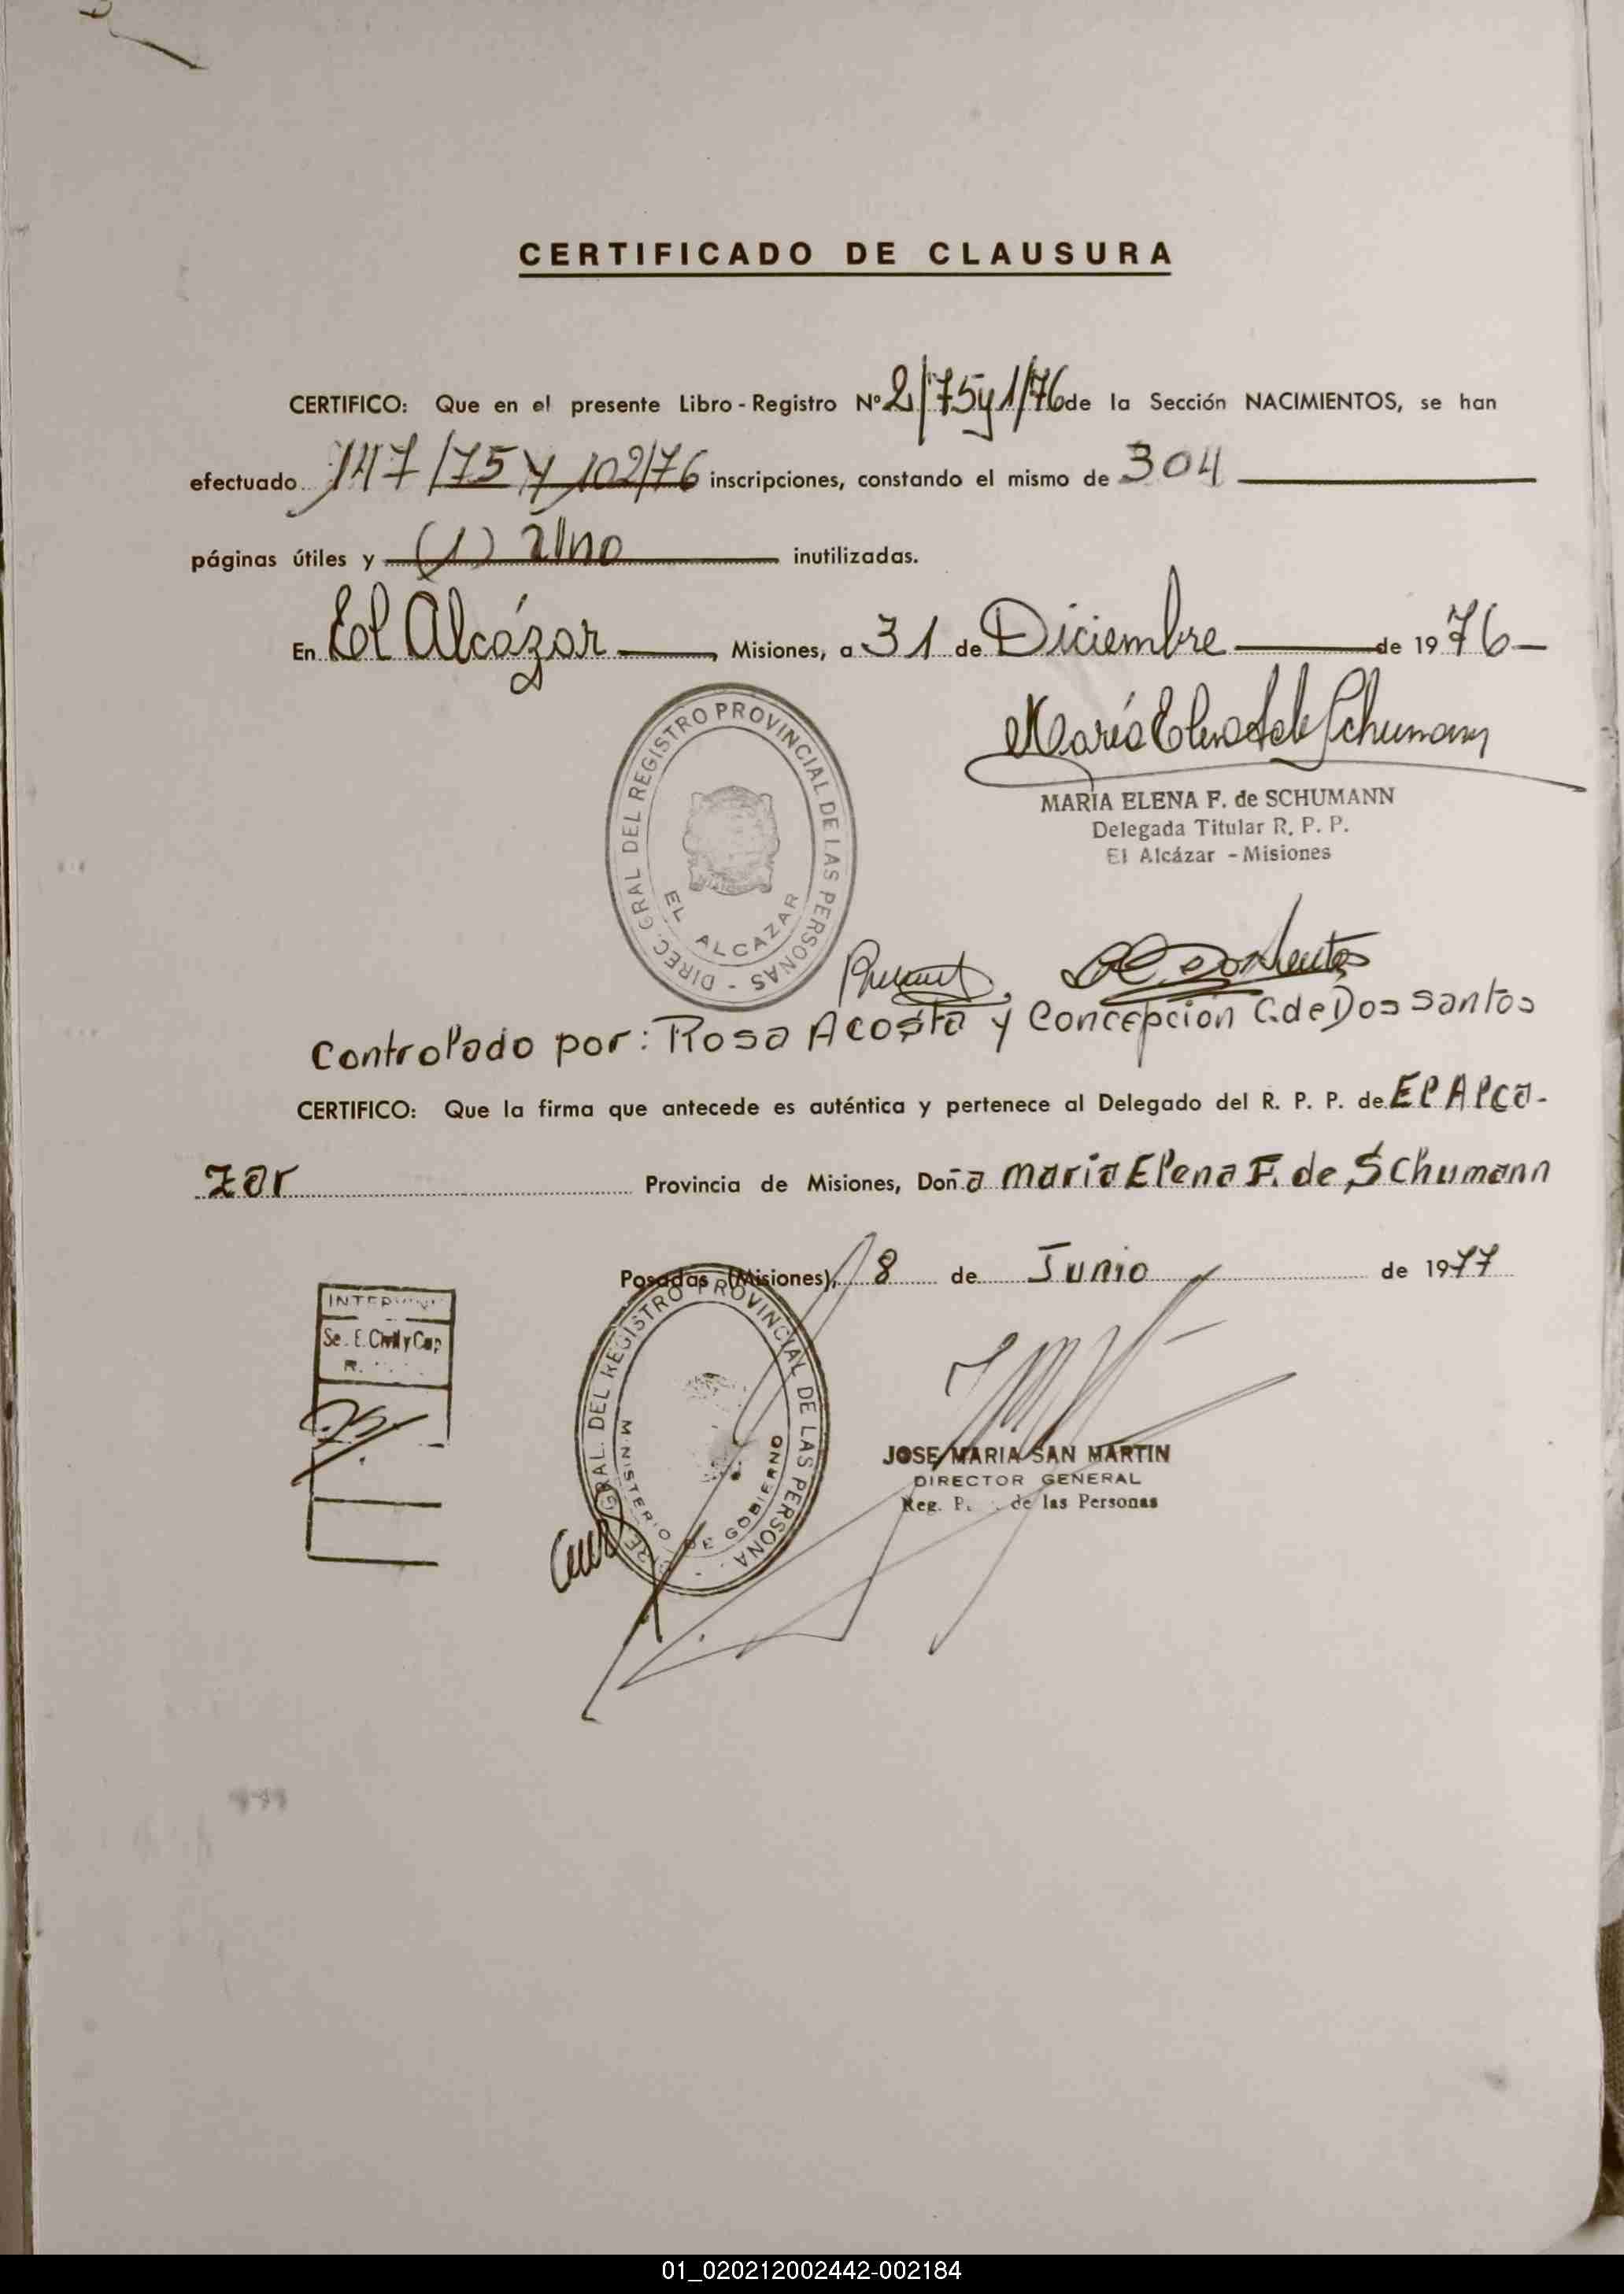 CERTIFICADO DE CLAUSURA
CERTIFICO: Que en el presente Libro-Registro Nº 2/75 y 1/76 de la Sección NACIMIENTOS, se han
efectuado 147/75 y 102/76 inscripciones, constando el mismo de 304
páginas útiles y (1) Uno inutilizadas.
En El Alcázar, Misiones, a 31 de Diciembre de 1976
DIREC. GRAL DEL REGISTRO PROVINCIAL DE LAS PERSONAS -
EL ALCAZAR
María Elena F. de Schumann
MARIA ELENA F. de SCHUMANN
Delegada Titular R. P. P.
El Alcázar - Misiones
Controlado por: Rosa Acosta y Concepcion C. de Dos Santos
CERTIFICO: Que la firma que antecede es auténtica y pertenece al Delegado del R. P. P. de El Alca-
zar Provincia de Misiones, Doña Maria Elena F. de Schumann
Posadas (Misiones), 8 de Junio de 1977
Civil y Cap
GRAL. DEL REGISTRO PROVINCIAL DE LAS PERSONA
MINISTERIO DE GOBIERNO
JOSE MARIA SAN MARTIN
DIRECTOR GENERAL
Reg. P. de las Personas
01_020212002442-002184